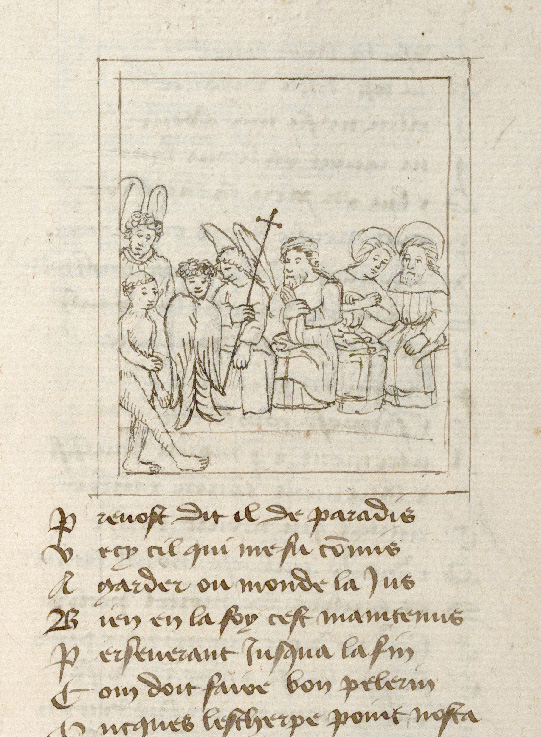 P revost dit il de paradis
V ecy cil qui me fu cõmis
A garder ou monde la Jus
B ien en la foy cest maintenus
P erseuerant Jusqua la fin
C om doit faire bon pelerin
O ncques lescherpe point nosta